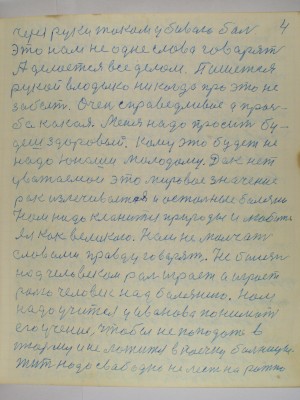 4
через руки таком убываю бал
Это нам не одне слова говарят
А делается все делом. Пишется
рукой владыко никогда про это не
забыт. Очен справедливае а проз-
ба какая. Меня надо просит бу-
деш здоровай. Кому это будет не
надо юноши молодому. Дак нет
уважаемои это мировое значение
рак излечивается и остальные балезни
Нам надо кланятся природы и любить
Ея как великого. Нам не молчат
словами правду говарят. Не балезн
над человеком рал играет а играет
ролю человек над балезнию. Нам
надо учится у иванова понимат
его учение, чтобы не попадать в
тюрму и не ложится в коечку балницы.
Жит надо свабодно не лезт на